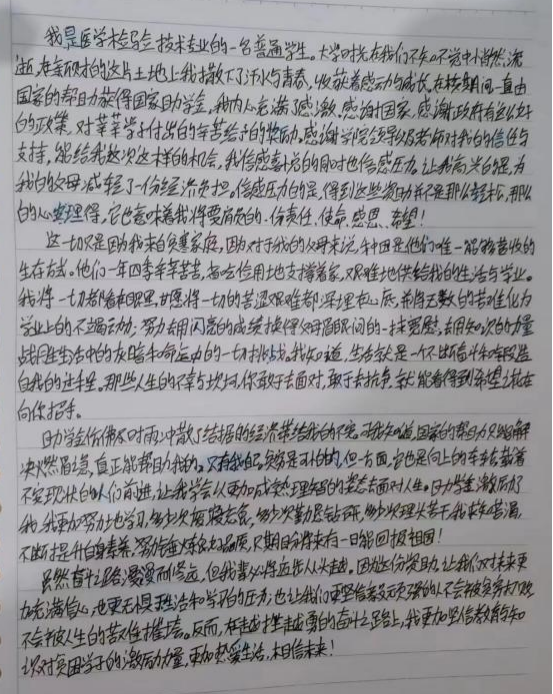 我是医学检验技术专业的一名普通学生。大学时光在我们不知不觉中悄然流
逝,在学院的这片土地上我播散下了汗水与青春,收获着感动与成长,在校期间一直由
国家的帮助获得国家助学金,我内心充满了感激,感谢国家,感谢政府有这么好
的政策,对莘莘学子付出的辛苦给予的奖励。感谢学院领导以及老师对我的信任与
支持,能给我这次这样的机会,我倍感喜悦的同时也倍感压力。让我高兴的是,为
我的父母减轻了一份经济负担。倍感压力的是,得到这些资助并不是那么轻松,那么
的心安理得,它也意味着我将要肩负的一份责任、使命、感恩、希望!
这一切只是因为我来自贫寒家庭,因为对于我的父母来说,种田是他们唯一能够营收的
生存方式。他们一年四季辛辛苦苦,省吃俭用地支撑着家,艰难地供给我的生活与学业。
我将一切都看在眼里,甘愿将一切的苦涩艰难都深埋在心底,并将无数的苦难化为
学业上的不竭动力;努力去用闪亮的成绩换得父母眉眼间的一抹宽慰,去用知识的力量
战胜生活中的灰暗和命运中的一切挑战。我知道,生活就是一个不断奋斗和书写
自我的过程。那些人生的不幸与坎坷,你敢于去面对,敢于去抗争,就能看得到希望就在
向你招手。
助学金仿佛及时雨,冲散了拮据的经济带给我的不安。可我知道,国家的帮助只能解
决燃眉之急,真正能帮助我的,只有我自己。贫穷是可怕的,但一方面,它也是向上的车轮,载着
不安现状的人们前进,让我学会以更加成熟理智的姿态去面对人生。助学金激励了
我,我更加努力地学习,多少次废寝忘食,多少次勤恳钻研,多少次埋头苦干,我求知若渴,
不断提升自身素养,努力锤炼自己品质,只期盼将来有一日能回报祖国!
虽然奋斗之路漫漫而修远,但我誓必将迈步从头越。因为这份资助,让我们对未来更
加充满信心,也更无惧生活和学习的压力,也让我们更坚信意志顽强的人不会被贫穷打败,
不会被人生的苦难摧毁。反而,在越挫越勇的奋斗之路上,我更加坚信教育与知
识对贫困学子的激励力量,更加热爱生活,相信未来!